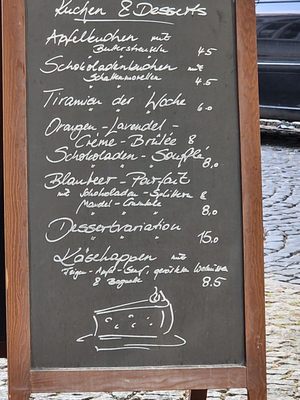 Kuchen & Desserts
Apfelkuchen mit
Butterstreuseln 4.5
Schokoladenküchen mit
Schattenmorellen 4.5
Tiramisu der Woche
" " " 6.0
Orangen-Lavendel-
Crème-Brûlée 8
Schokoladen-Soufflé
" " 8,0
Blauбeer-Parfait
mit Schokoladen-Splittern &
Mandel-Crumble
" " 8,0
Dessertvariation
" " " 15,0
Käsehappen mit
Feigen-Apfel-Senf, gerösteten Walnüssen
& Baguette 8.5